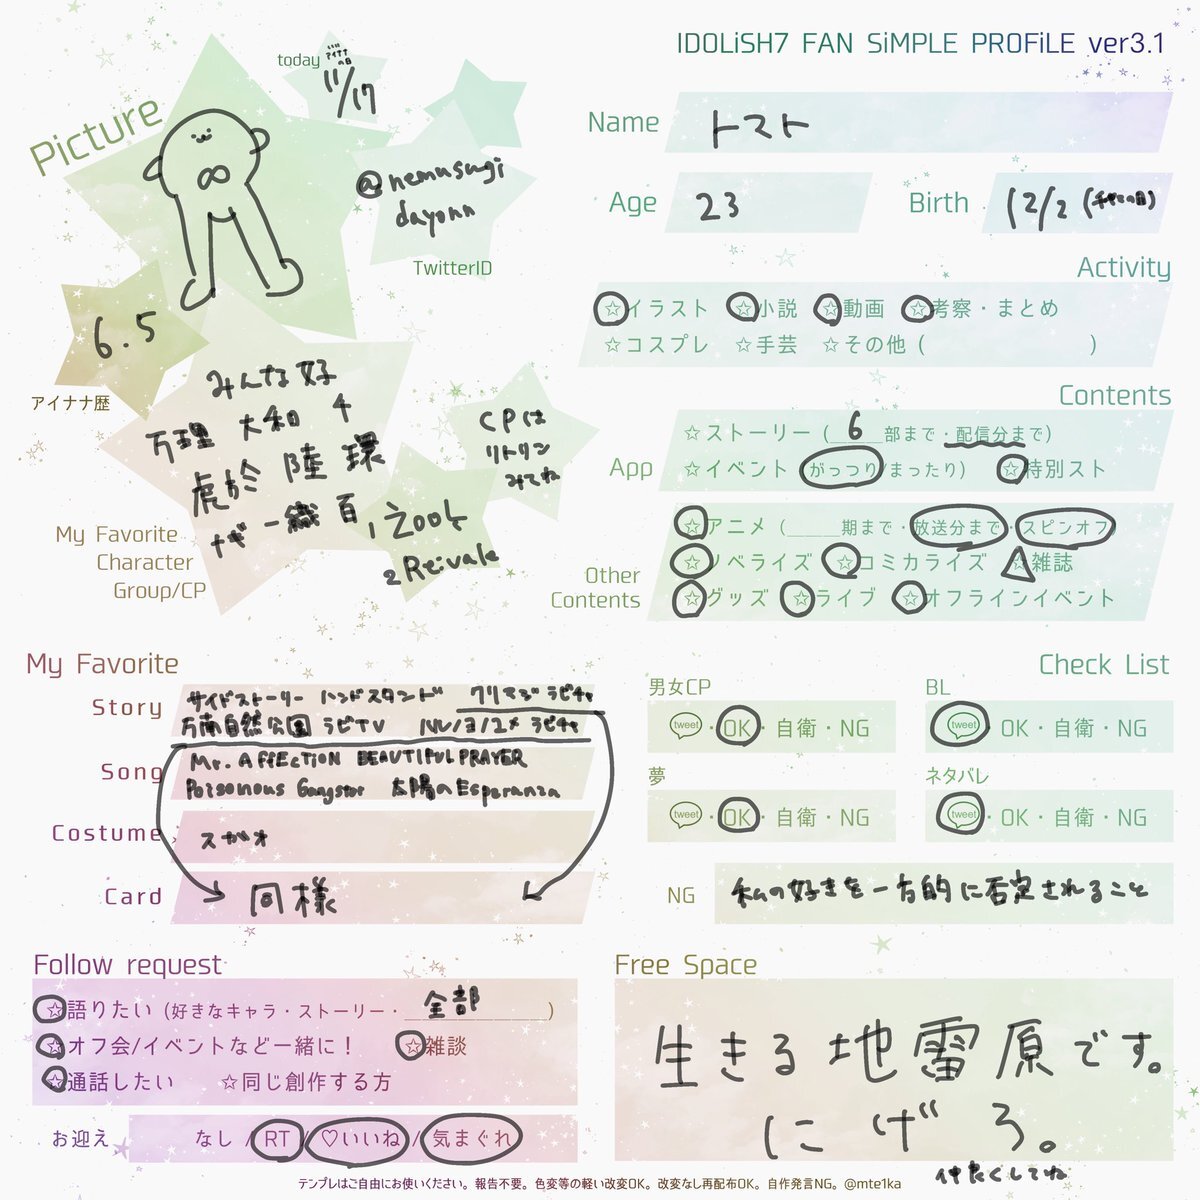 IDOLiSH7 FAN SiMPLE PROFiLE ver3.1
today
アイナナ
の日
11/17
Picture
@nemusugi
dayonn
TwitterID
6.5
アイナナ歴
みんな好
万理 大和 千
虎於 陸 環
ナギ 一織 百
ŹOOĻ
Re:vale
CPは
リトリン
みてね
My Favorite
Character
Group/CP
Name
トマト
Age
23
Birth
12/2
Activity
☆イラスト ☆小説 ☆動画 ☆考察・まとめ
☆コスプレ ☆手芸 ☆その他 ( )
Contents
App
☆ストーリー (__6__部まで・配信分まで)
☆イベント (がっつり/まったり) ☆特別スト
Other
Contents
☆アニメ (____期まで・放送分まで・スピンオフ)
☆ノベライズ ☆コミカライズ ☆雑誌
☆グッズ ☆ライブ ☆オフラインイベント
My Favorite
Story
サイドストーリー ハンドスタンド クリマジ ラビチャ
万南自然公園 ラビTV ラビチャ
Song
Mr. AFFECTiON BEAUTIFUL PRAYER
Poisonous Gangster 太陽のEsperanza
Costume
スガオ
Card
同様
Check List
男女CP
tweet・OK・自衛・NG
BL
tweet・OK・自衛・NG
夢
tweet・OK・自衛・NG
ネタバレ
tweet・OK・自衛・NG
NG
私の好きを一方的に否定されること
Follow request
☆語りたい (好きなキャラ・ストーリー・__全部__)
☆オフ会/イベントなど一緒に! ☆雑談
☆通話したい ☆同じ創作する方
お迎え
なし / RT / ♡いいね / 気まぐれ
Free Space
生きる地雷原です。
にげろ。
仲良くしてね
テンプレはご自由にお使いください。報告不要。色変等の軽い改変OK。改変なし再配布OK。自作発言NG。@mte1ka